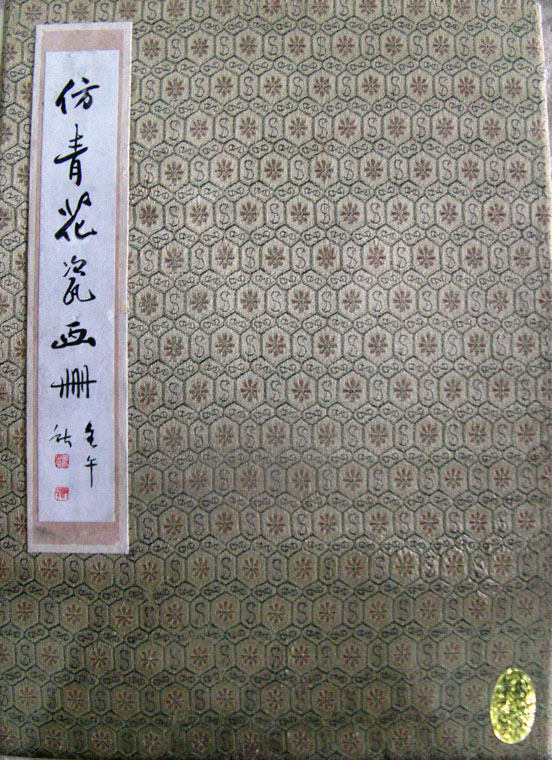 仿青花瓷画册
壬午
秋